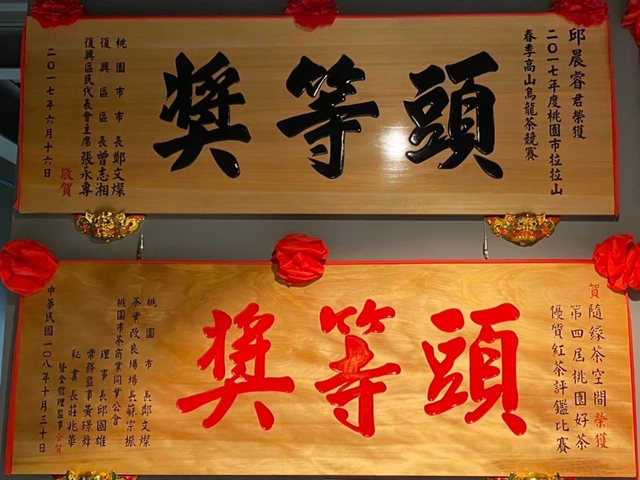 邱晨睿君榮獲
二〇一七年度桃園市拉拉山
春季高山烏龍茶競賽
頭等獎
桃園市市長鄭文燦
復興區區長曾志湘
復興區民代表會主席張永尊
敬賀
二〇一七年六月十六日
賀隨緣茶空間榮獲
第四屆桃園好茶
優質紅茶評鑑比賽
頭等獎
桃園市市長鄭文燦
茶業改良場場長蘇宗振
桃園市茶商業同業公會
理事長邱國雄
常務監事黃璟舜
秘書長莊兆華
暨全體理監事仝賀
中華民國一〇八年十月三十日